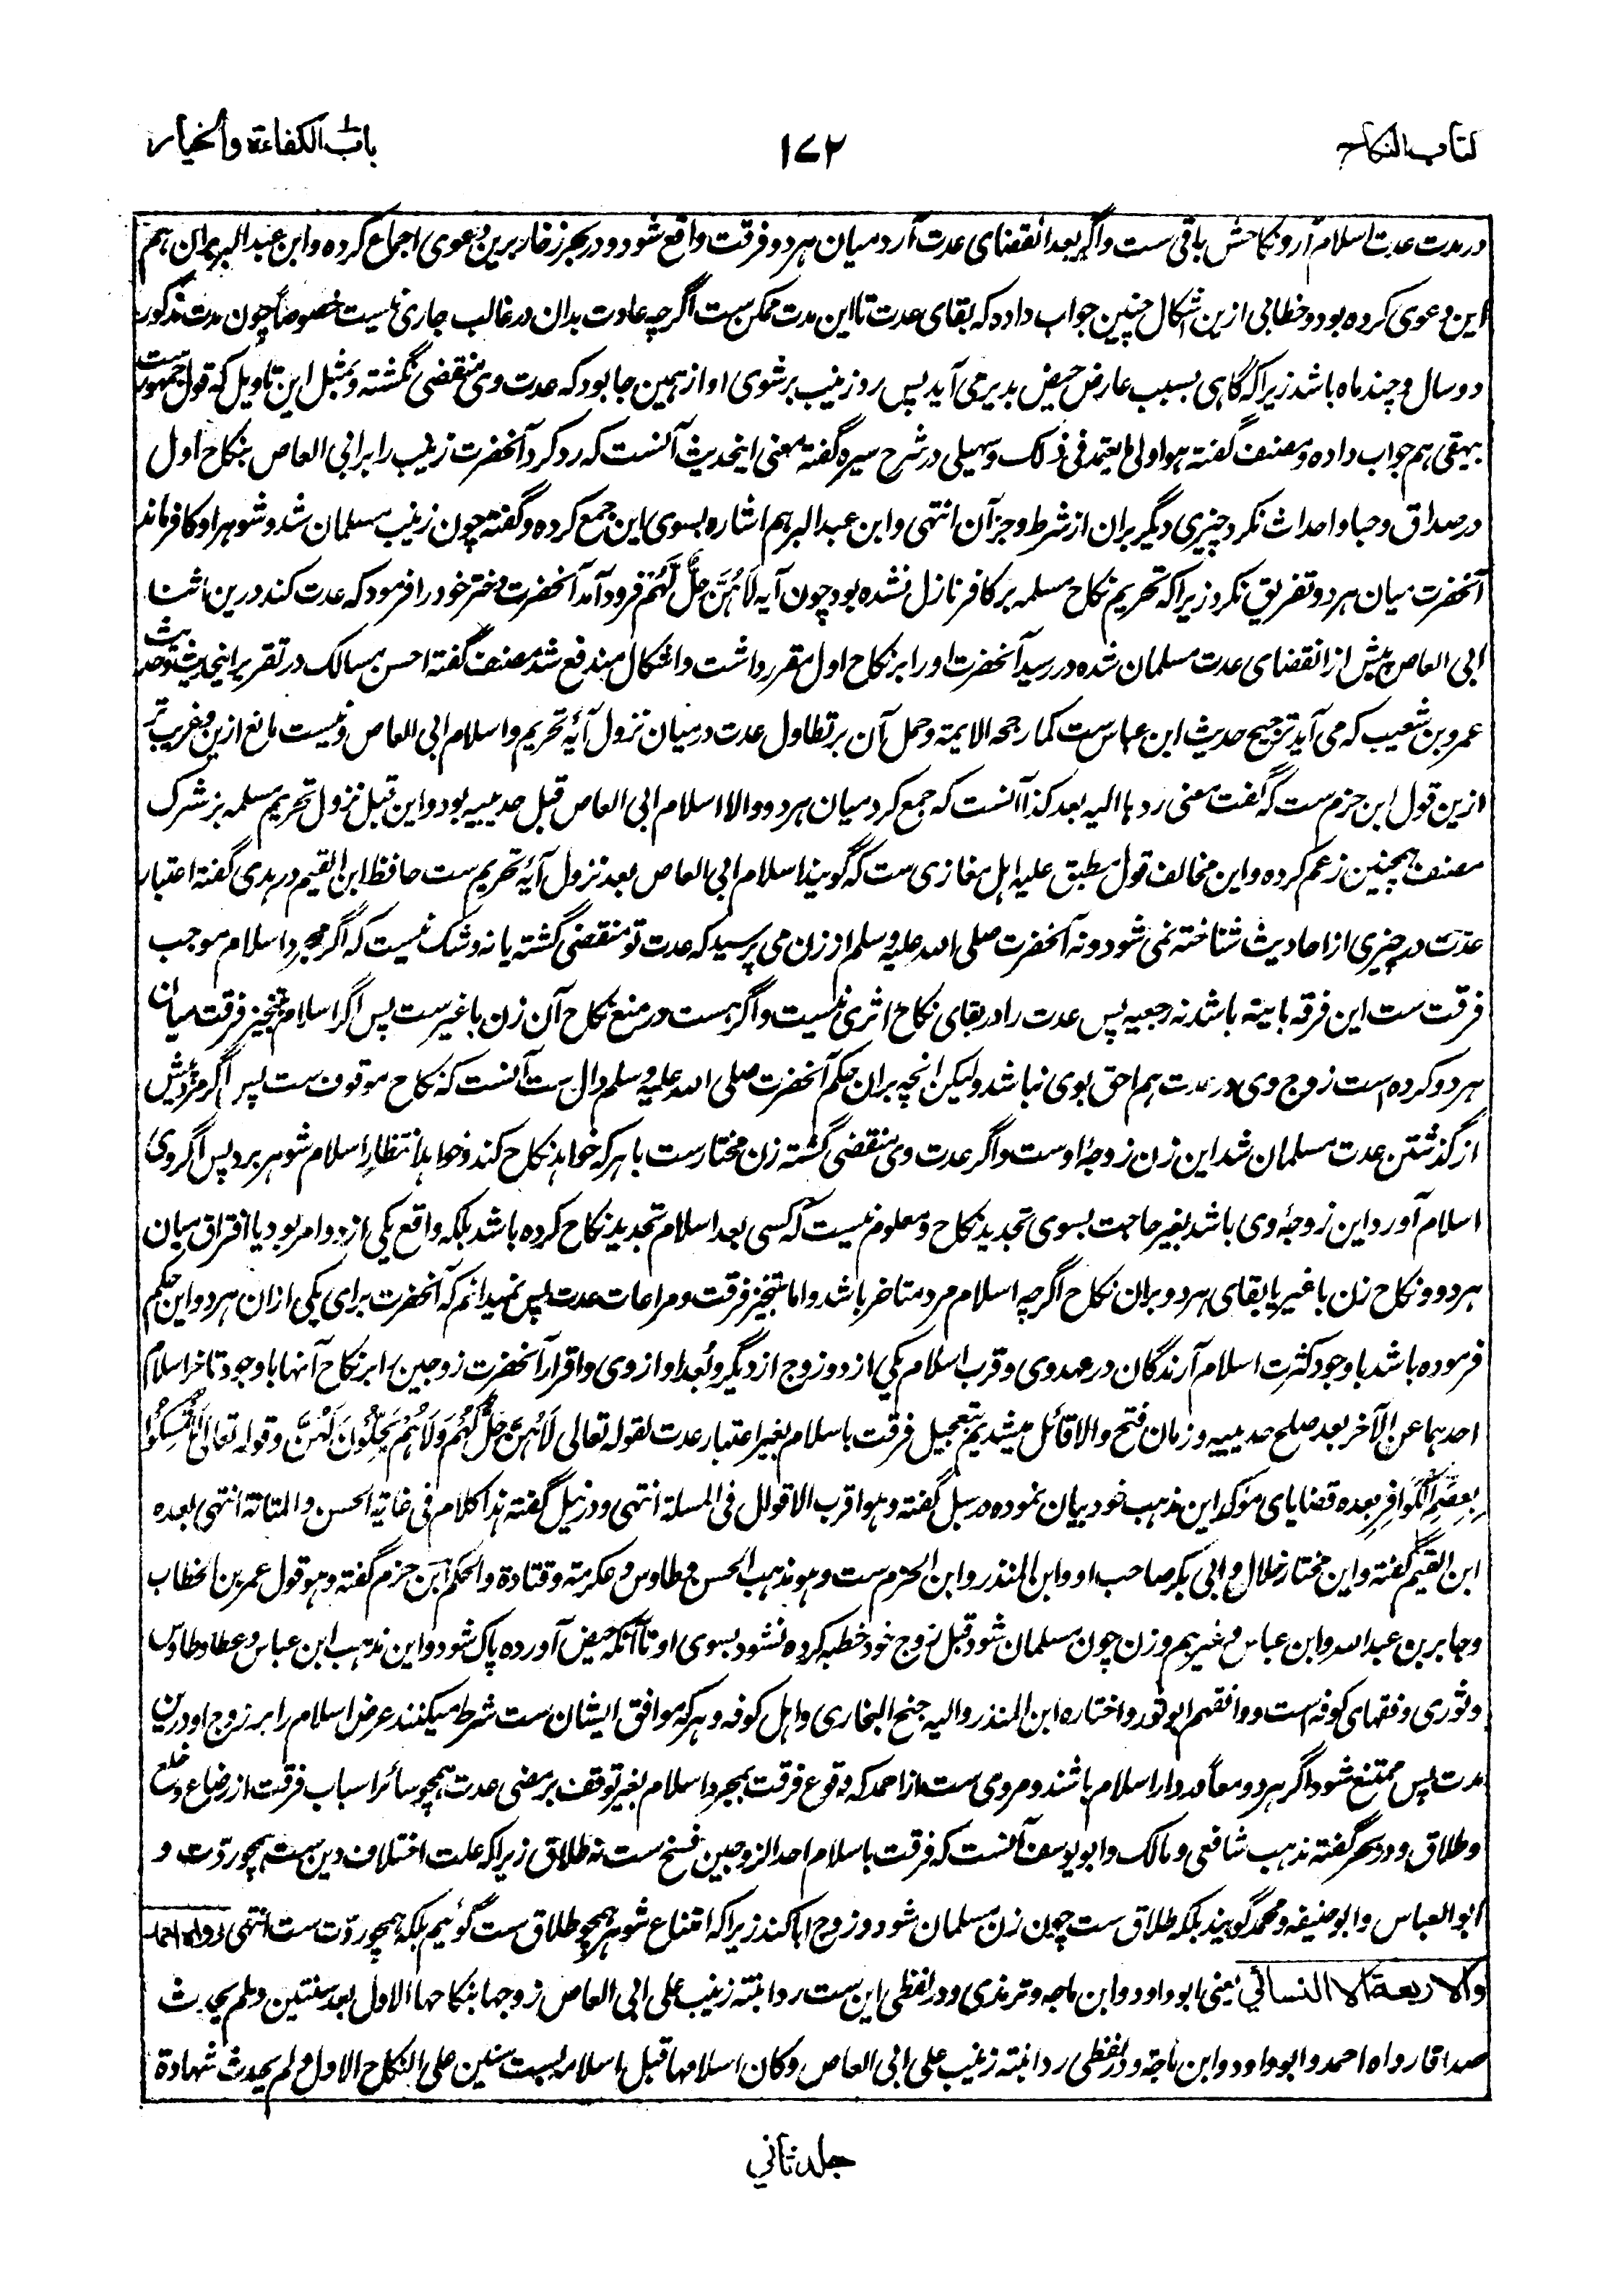 كتاب النكاح
١٧٢
باب الكفاءة والخيار
در مدت عدت اسلام آرد نكاحش باقى ست واگر بعد انقضاى عدت آرد ميان هر دو فرقت واقع شود ودر بحر زخار برين دعوى اجماع كرده وابن عبد البر بران هم
اين دعوى كرده بود وخطابى ازين اشكال چنين جواب داده كه بقاى عدت تا اين مدت ممكن ست اگرچه عادت بدان در غالب جارى نيست خصوصاً چون مدت مذكور
دو سال وچند ماه باشد زيرا كه گاهى بسبب عارض حيض بدير مى آيد پس رد زينب بر شوى او از همين جا بود كه عدت وى منقضى نگشته وبمثل اين تاويل كه قول جمهور ست
بيهقى هم جواب داده ومصنف گفته هو اولى ما يعتمد فى ذلك وسهيلى در شرح سيره گفته معنى اين حديث آنست كه رد كرد آنحضرت زينب را بر ابى العاص بنكاح اول
در صداق وحبا واحداث نكرد چيزى ديگر بران از شرط وجز آن انتهى وابن عبد البر هم اشاره بسوى اين جمع كرده وگفته چون زينب مسلمان شد وشوهر او كافر ماند
آنحضرت ميان هر دو تفريق نكرد زيرا كه تحريم نكاح مسلمه بر كافر نازل نشده بود چون آيه لَا هُنَّ حِلٌّ لَّهُمْ فرود آمد آنحضرت دختر خود را فرمود كه عدت كند درين اثنا
ابى العاص پيش از انقضاى عدت مسلمان شده در رسيد آنحضرت او را بر نكاح اول مقرر داشت واشكال مندفع شد مصنف گفته احسن مسالك در تقرير اين حديث وحديث
عمرو بن شعيب كه مى آيد ترجيح حديث ابن عباس ست كما رجحه الايمة وحمل آن بر تطاول عدت درميان نزول آيه تحريم واسلام ابى العاص ونيست مانع ازين وغريب تر
ازين قول ابن حزم ست كه گفت معنى ردها اليه بعد كذا آنست كه جمع كرد ميان هر دو والا اسلام ابى العاص قبل حديبيه بود واين قبل نزول تحريم مسلمه بر مشرك
مصنف همچنين زعم كرده واين مخالف قول مطبق عليه اهل مغازى ست كه گويند اسلام ابى العاص بعد نزول آيه تحريم ست حافظ ابن القيم در هدى گفته اعتبار
عدت در چيزى از احاديث شناخته نمى شود ونه آنحضرت صلى الله عليه وسلم از زن مى پرسيد كه عدت تو منقضى گشته يا نه وشك نيست كه اگر مجرد اسلام موجب
فرقت ست اين فرقه باينه باشد نه رجعيه پس عدت را در بقاى نكاح اثرى نيست واگر هست در منع نكاح آن زن با غير ست پس اگر اسلام تنجيز فرقت ميان
هر دو كرده است زوج وى در عدت هم احق بوى نباشد وليكن انچه بران حكم آنحضرت صلى الله عليه وسلم دال ست آنست كه نكاح موقوف ست پس اگر مرد پيش
از گذشتن عدت مسلمان شد اين زن زوجه اوست واگر عدت وى منقضى گشته زن مختار ست با هر كه خواهد نكاح كند وخواهد انتظار اسلام شوهر برد پس اگر وى
اسلام آورد اين زوجۀ وى باشد بغير حاجت بسوى تجديد نكاح ومعلوم نيست كه كسى بعد اسلام تجديد نكاح كرده باشد بلكه واقع يكى از دو امر بود يا افتراق ميان
هر دو ونكاح زن با غير يا بقاى هر دو بران نكاح اگرچه اسلام مرد متاخر باشد واما تنجيز فرقت ومراعات عدت پس نميدانم كه آنحضرت براى يكى ازان هر دو اين حكم
فرموده باشد با وجود كثرت اسلام آرندگان در عهد وى وقرب اسلام يكى از دو زوج از ديگر وبُعد او از وى واقرار آنحضرت زوجين را بر نكاح آنها با وجود تاخر اسلام
احدهما عن الآخر بعد صلح حديبيه وزمان فتح والا قائل ميشديم بتعجيل فرقت باسلام بغير اعتبار عدت لقوله تعالى لَا هُنَّ حِلٌّ لَّهُمْ وَلَا هُمْ يَحِلُّونَ لَهُنَّ وقوله تعالى وَلَا تُمْسِكُوا
بِعِصَمِ الْكَوَافِرِ بعده قضاياى مؤكد اين مذهب خود بيان نموده در سبل گفته وهو اقرب الاقوال فى المسئلة انتهى ودر نيل گفته هذا كلام فى غاية الحسن والمتانة انتهى بعده
ابن القيم گفته واين مختار خلال وابى بكر صاحب او وابن المنذر وابن الحزم ست وهو مذهب الحسن وطاوس وعكرمة وقتادة والحكم ابن حزم گفته وهو قول عمر بن الخطاب
وجابر بن عبد الله وابن عباس وغيرهم وزن چون مسلمان شود قبل زوج خود خطبه كرده نشود بسوى او تا آنكه حيض آورده پاك شود واين مذهب ابن عباس وعطا وطاوس
وثورى وفقهاى كوفه است ووافقهم ابو ثور واختاره ابن المنذر واليه جنح البخارى واهل كوفه وهر كه موافق ايشان ست شرط ميكنند عرض اسلام را بر زوج او درين
مدت پس ممتنع شود اگر هر دو معاً در دار اسلام باشند ومروى ست از احمد كه وقوع فرقت بمجرد اسلام بغير توقف بر مضى عدت همچو سائر اسباب فرقت از رضاع وخلع
وطلاق ودر بحر گفته مذهب شافعى ومالك وابو يوسف آنست كه فرقت باسلام احد الزوجين فسخ ست نه طلاق زيرا كه علت اختلاف دين ست همچو ردّت و
ابو العباس وابو حنيفه ومحمد گويند بلكه طلاق ست چون زن مسلمان شود وزوج ابا كند زيرا كه امتناع شوهر همچو طلاق ست گوئيم بلكه همچو ردّت ست انتهى رواه احمد
والاربعة الا النسائي يعنى ابو داود وابن ماجه وترمذى ودر لفظى اين ست رد ابنته زينب على ابى العاص زوجها بنكاحها الاول بعد سنتين ولم يحدث
صداقا رواه احمد وابو داود وابن ماجة ودر لفظى رد ابنته زينب على ابى العاص وكان اسلامها قبل اسلامه بست سنين على النكاح الاول ولم يحدث شهادة
جلد ثاني